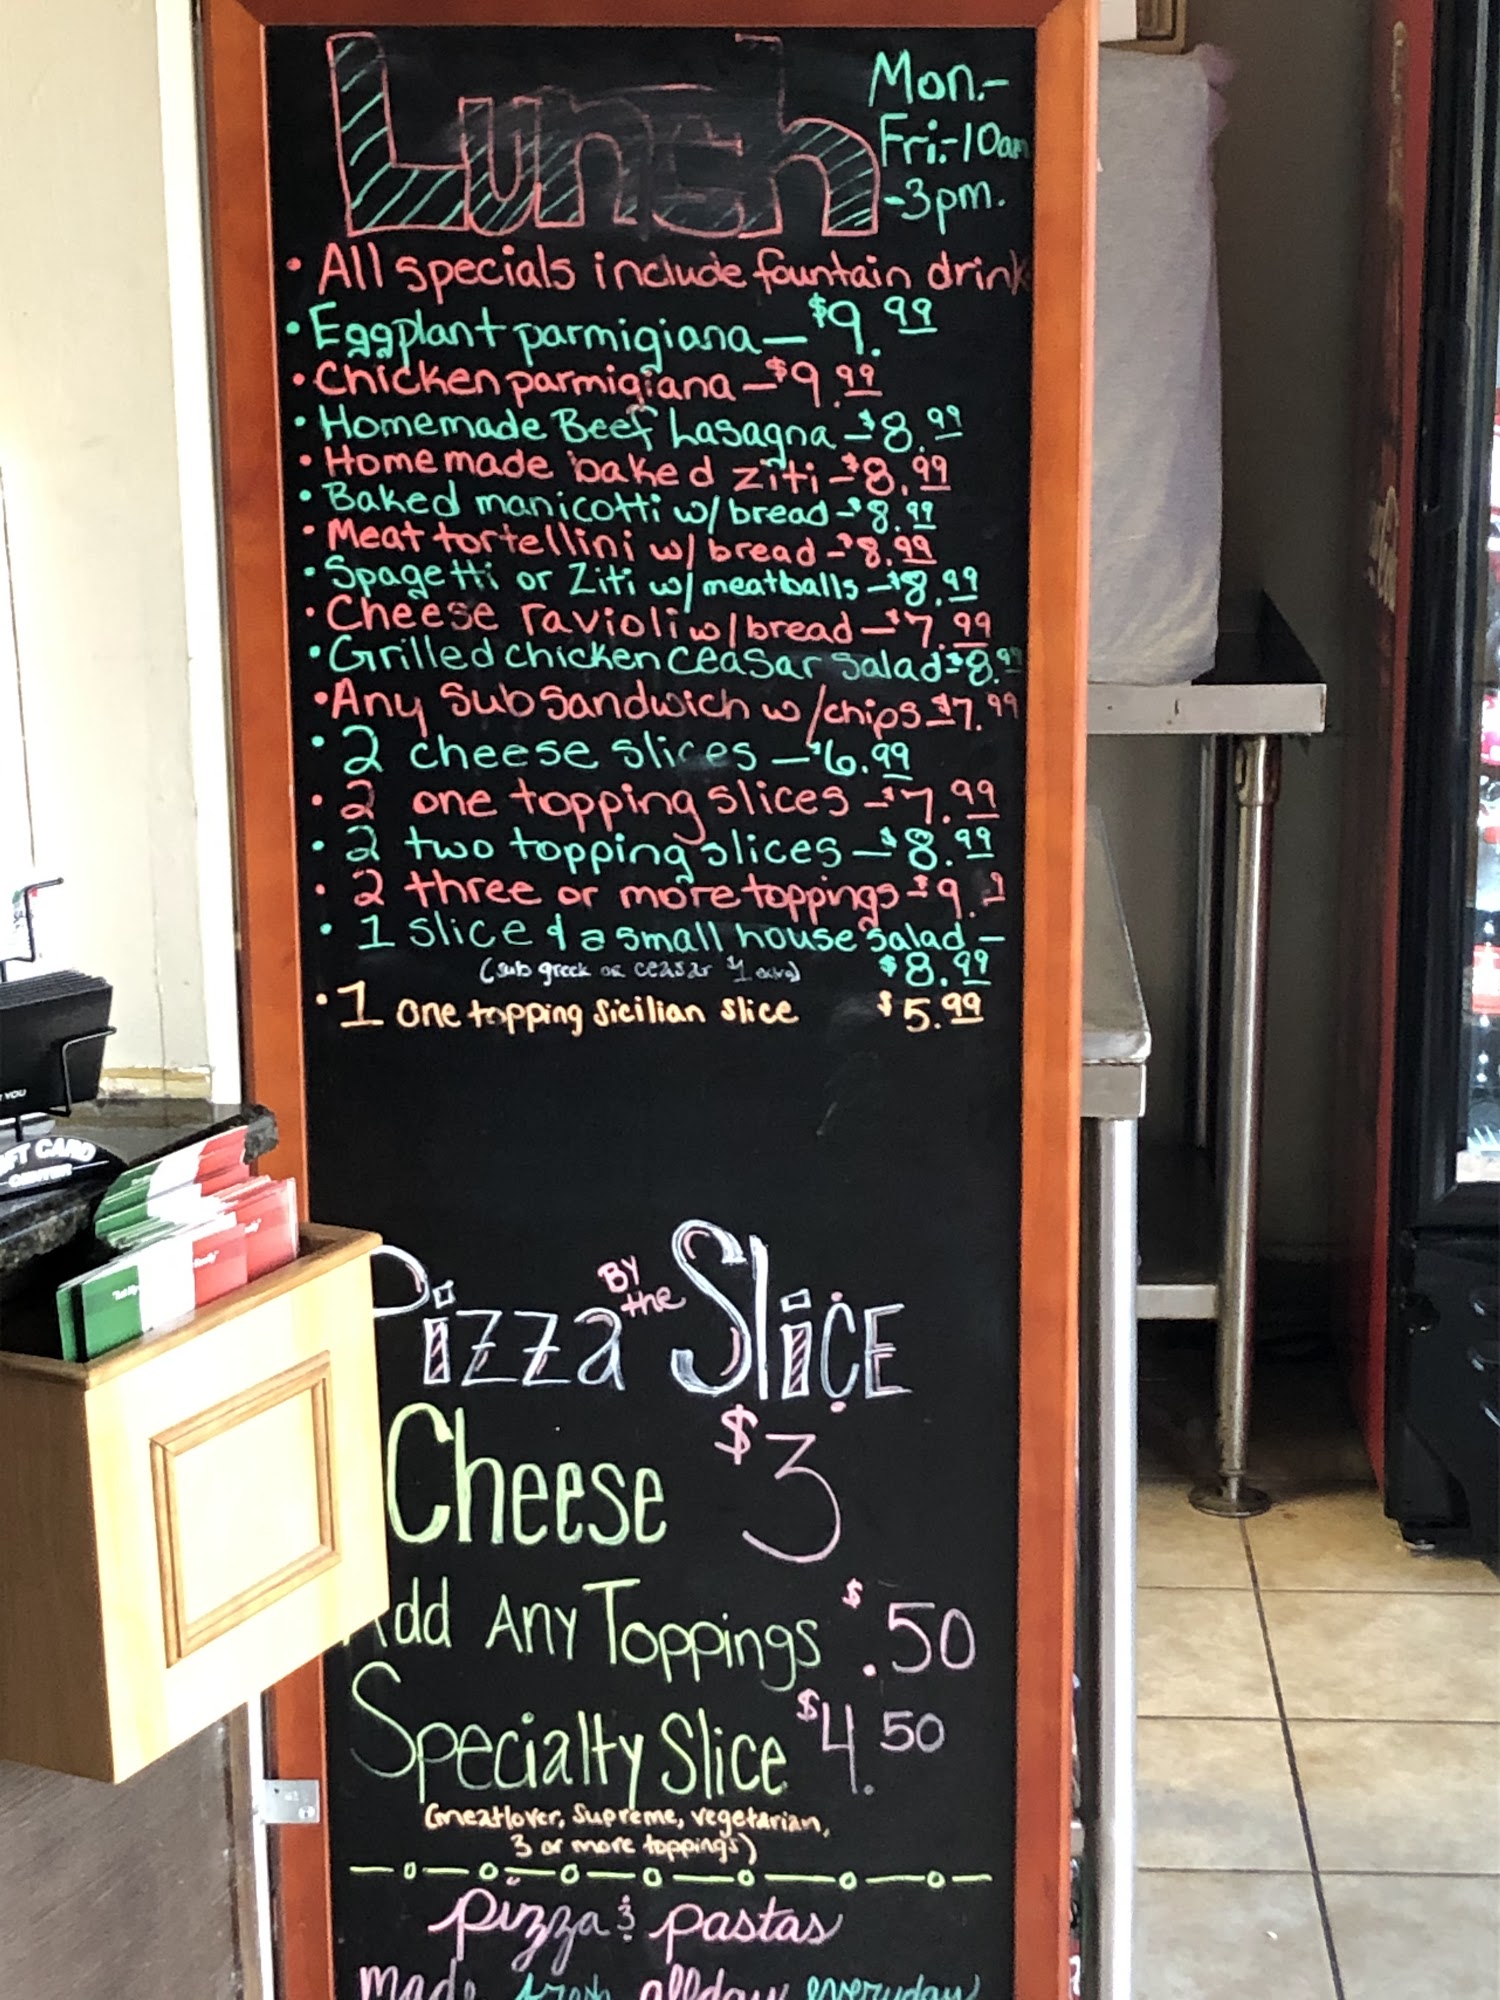 Lunch
Mon.-
Fri.-10am
-3pm.
• All specials include fountain drink
• Eggplant parmigiana — $9.99
• Chicken parmigiana — $9.99
• Homemade Beef Lasagna — $8.99
• Homemade baked ziti - $8.99
• Baked manicotti w/ bread - $8.99
• Meat tortellini w/ bread - $8.99
• Spagetti or Ziti w/ meatballs — $8.99
• Cheese ravioli w/ bread — $7.99
• Grilled chicken ceasar salad - $8.99
• Any sub sandwich w/chips - $7.99
• 2 cheese slices — $6.99
• 2 one topping slices - $7.99
• 2 two topping slices — $8.99
• 2 three or more toppings - $9.
• 1 slice & a small house salad -
(sub greek or ceasar $1 extra) $8.99
• 1 one topping Sicilian slice $5.99
Pizza BY the SliCE
Cheese $3
Add ANY Toppings $.50
Specialty Slice $4.50
(meatlover, supreme, vegetarian,
3 or more toppings)
pizza & pastas
made fresh allday everyday
YOU
FT CARD